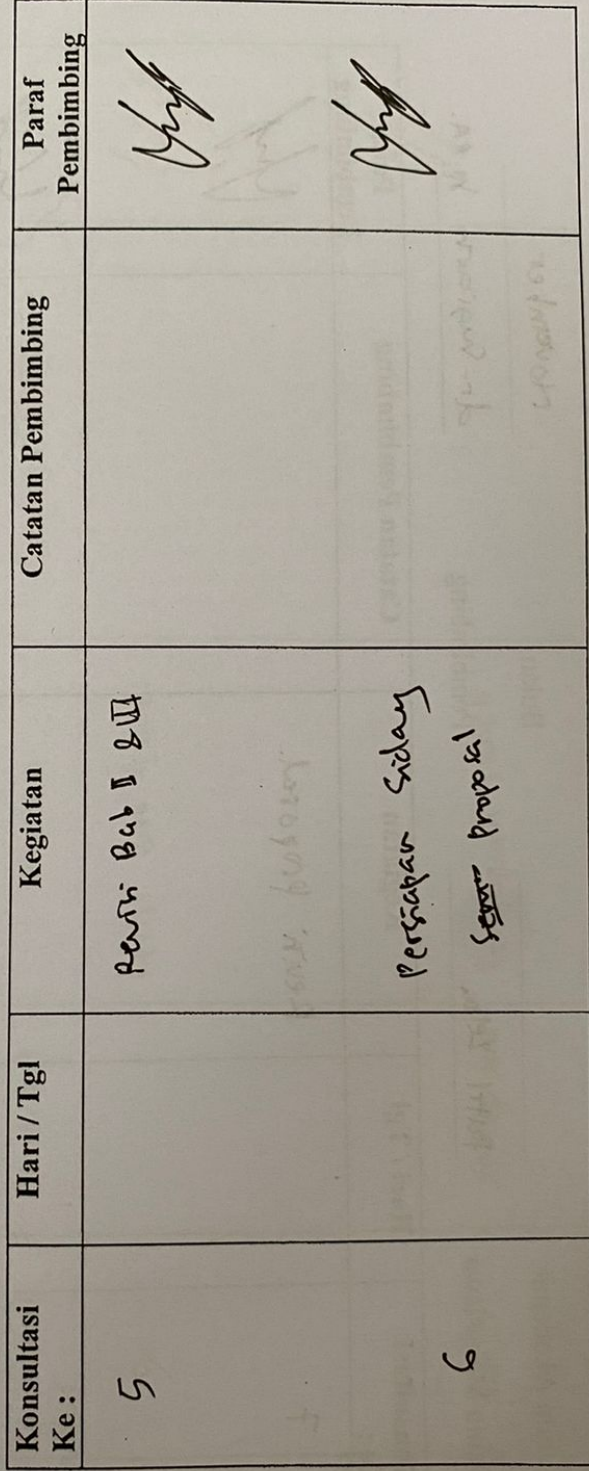 Konsultasi Ke :
Hari / Tgl
Kegiatan
Catatan Pembimbing
Paraf Pembimbing
5
Revisi Bab II & III
6
Persiapan Sidang
proposal